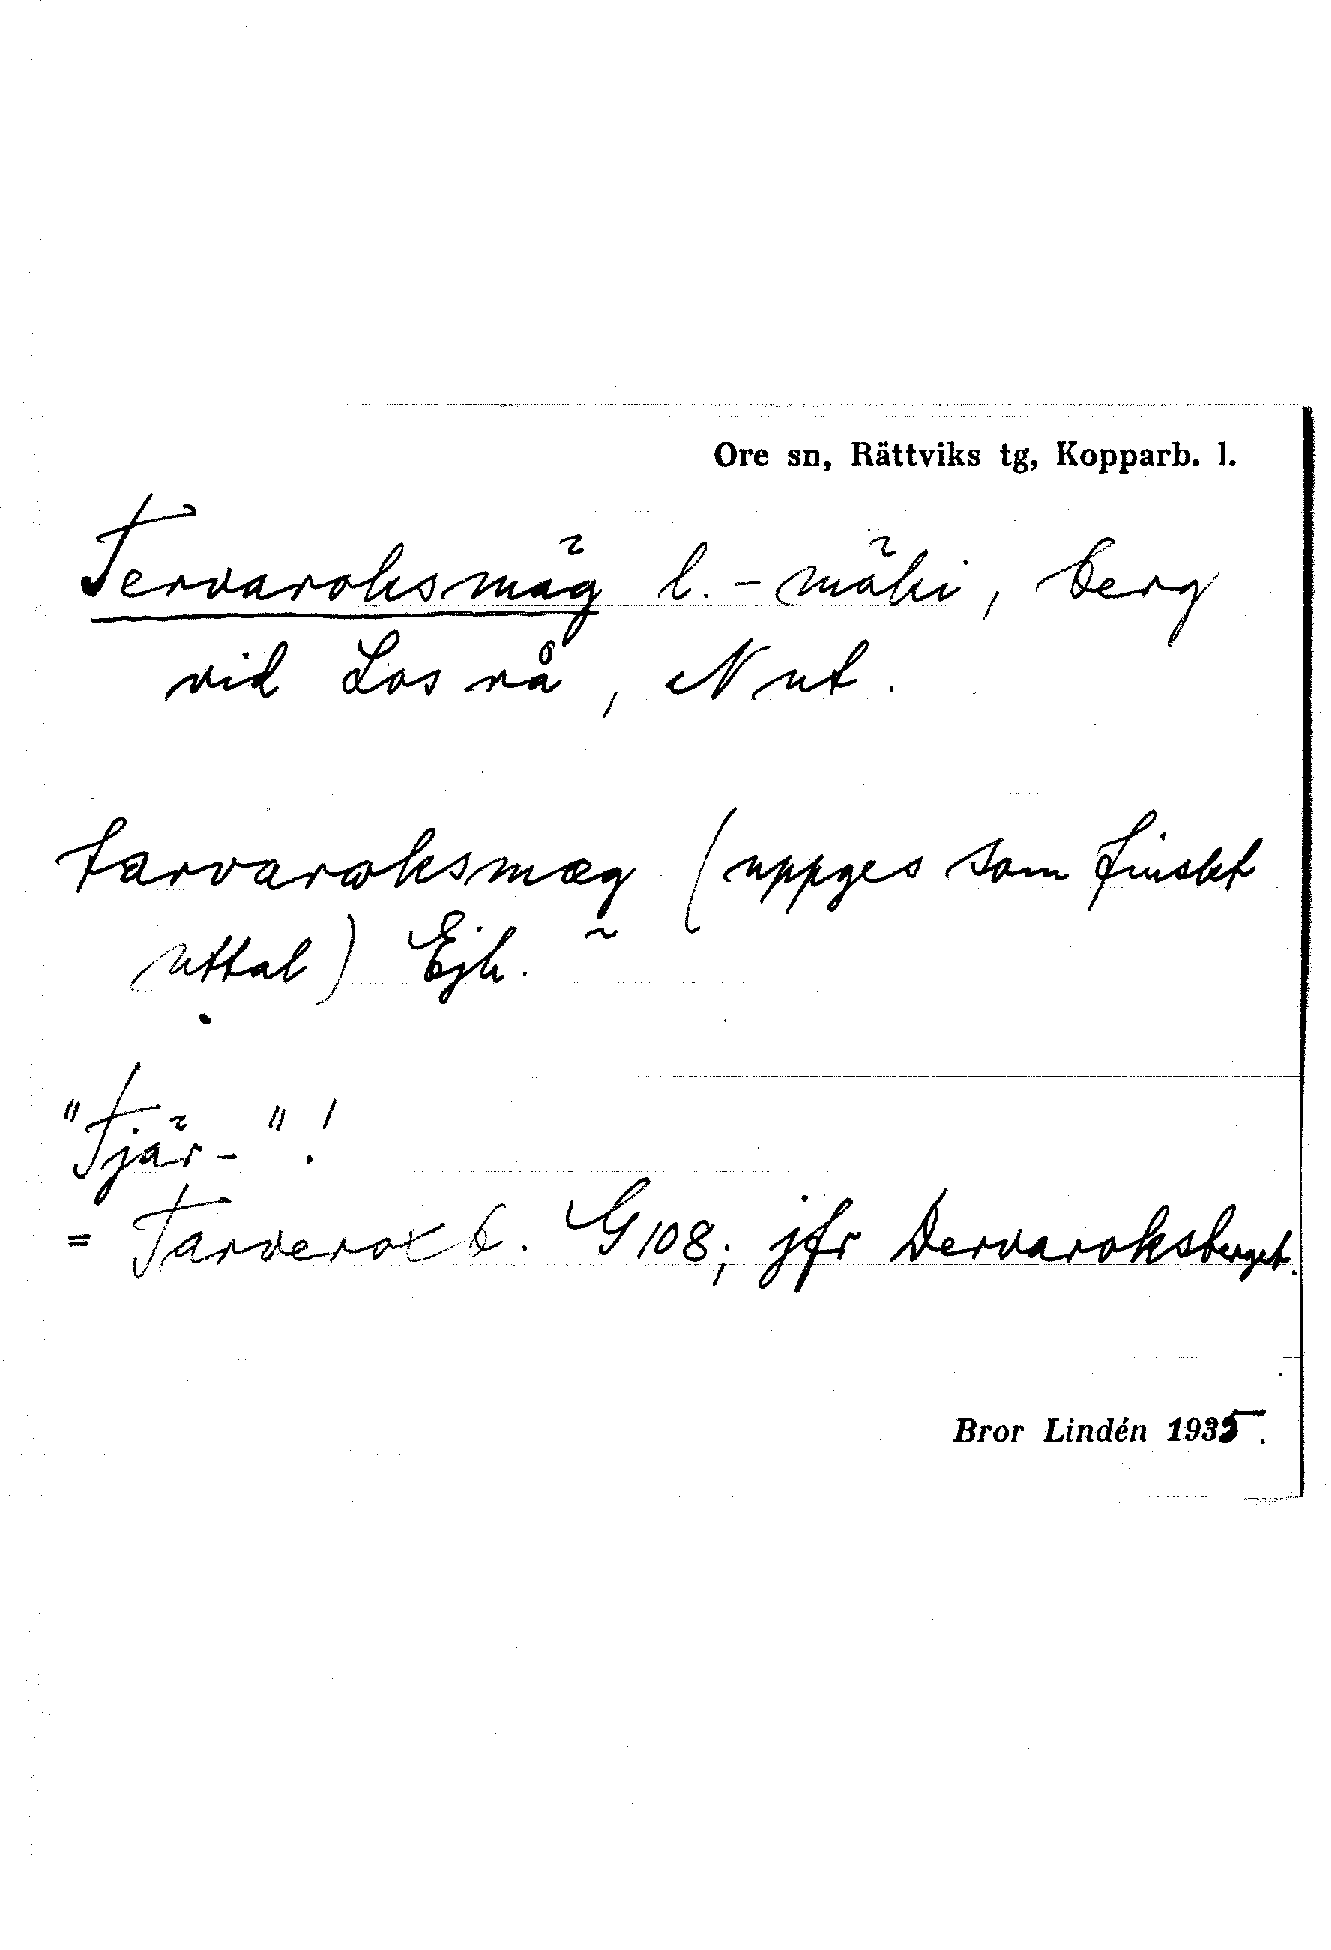 Ore sn, Rättviks tg, Kopparb. l.
Tervaroksmäg l. -mäki, berg
vid Los rå, N ut.
tarvaroksmæg (uppges som finskt
uttal) Ejh.
"Tjär-"!
= Tarverox b. G 108; jfr Dervaroksberget.
Bror Lindén 1935.